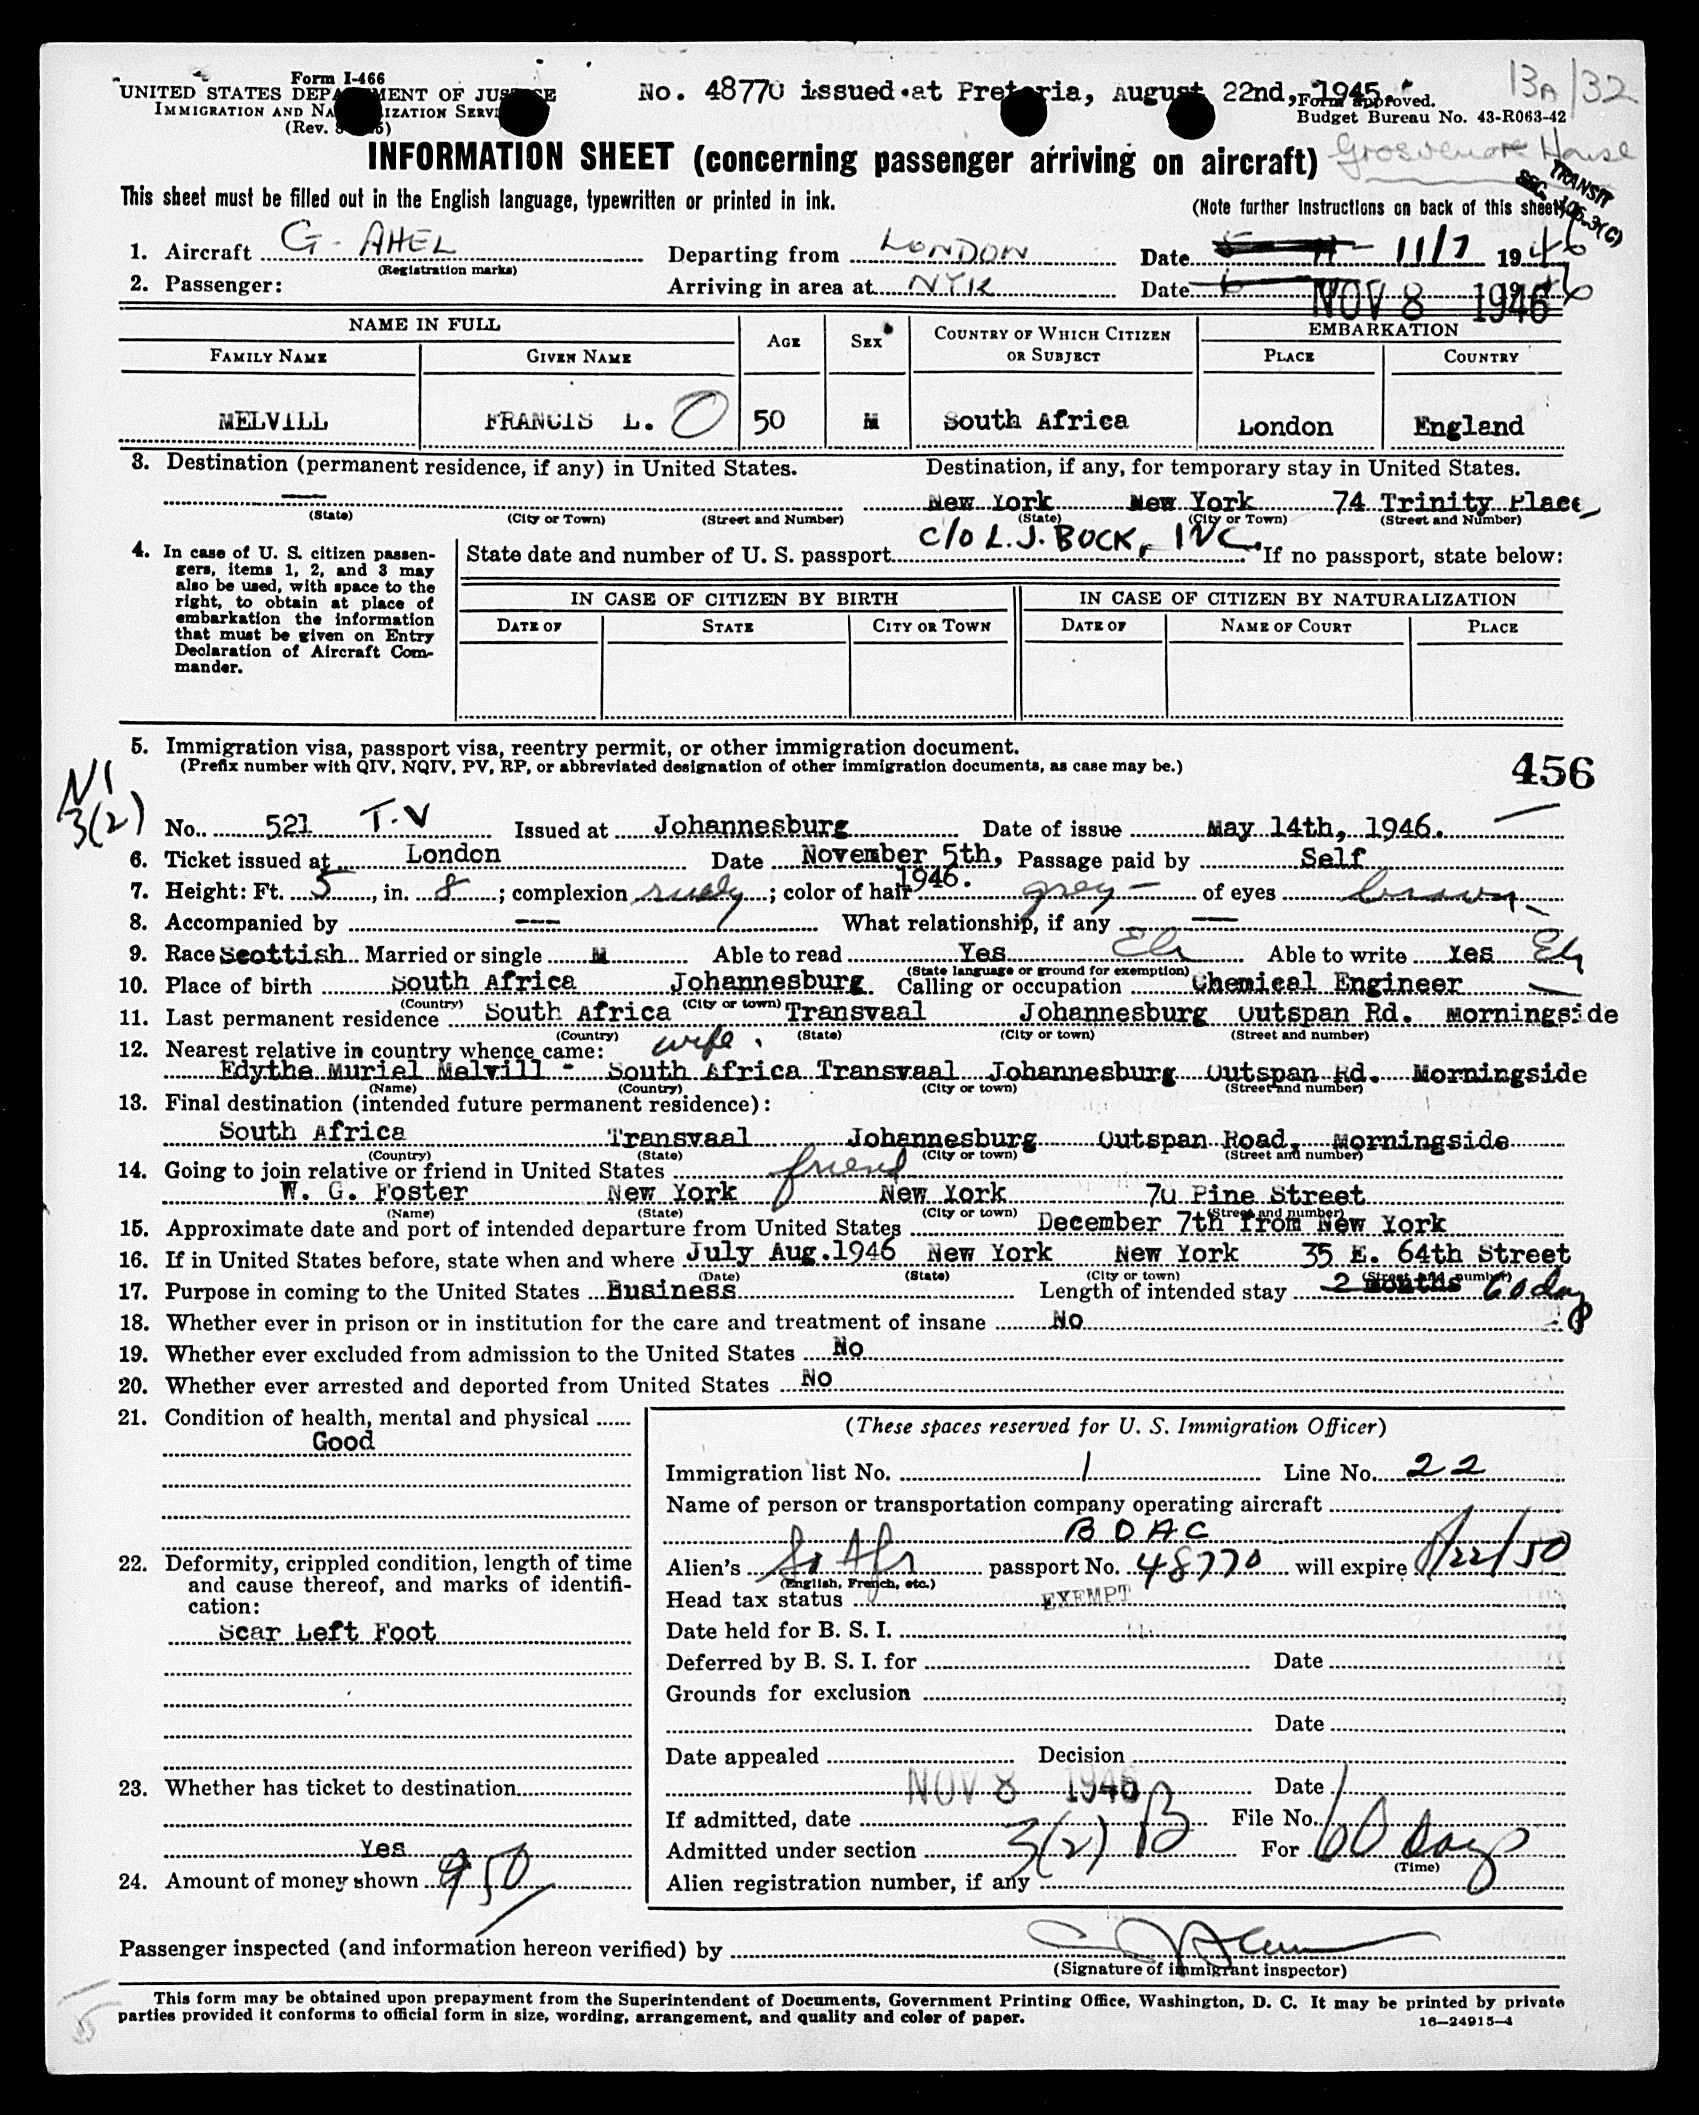 Form I-466
UNITED STATES DEPARTMENT OF JUSTICE
IMMIGRATION AND NATURALIZATION SERVICE
(Rev.
No. 48770 issued at Pretoria, August 22nd, 1945.
Form approved.
Budget Bureau No. 43-R063-42
13A/32
Grosvenor House
INFORMATION SHEET (concerning passenger arriving on aircraft)
TRANSIT
SEC. 3(C)
This sheet must be filled out in the English language, typewritten or printed in ink.
(Note further instructions on back of this sheet)
1. Aircraft G-AHEL Departing from LONDON Date 11/7 1946
(Registration marks)
2. Passenger: Arriving in area at NYK Date NOV 8 1946
NAME IN FULL AGE SEX COUNTRY OF WHICH CITIZEN OR SUBJECT EMBARKATION
FAMILY NAME GIVEN NAME PLACE COUNTRY
MELVILL FRANCIS L. 50 M South Africa London England
3. Destination (permanent residence, if any) in United States. Destination, if any, for temporary stay in United States.
— New York New York 74 Trinity Place
(State) (City or Town) (Street and Number) (State) (City or Town) (Street and Number)
c/o L.J. BUCK, INC.
4. In case of U. S. citizen passengers, items 1, 2, and 3 may also be used, with space to the right, to obtain at place of embarkation the information that must be given on Entry Declaration of Aircraft Commander.
State date and number of U. S. passport If no passport, state below:
IN CASE OF CITIZEN BY BIRTH IN CASE OF CITIZEN BY NATURALIZATION
DATE OF STATE CITY OR TOWN DATE OF NAME OF COURT PLACE
5. Immigration visa, passport visa, reentry permit, or other immigration document.
(Prefix number with QIV, NQIV, PV, RP, or abbreviated designation of other immigration documents, as case may be.)
456
VI
3(2)
No. 521 T.V Issued at Johannesburg Date of issue May 14th, 1946.
6. Ticket issued at London Date November 5th, 1946. Passage paid by Self
7. Height: Ft. 5, in. 8; complexion ruddy; color of hair grey — of eyes brown
8. Accompanied by --- What relationship, if any —
9. Race Scottish Married or single M Able to read Yes Eh Able to write Yes Eh
(State language or ground for exemption)
10. Place of birth South Africa Johannesburg. Calling or occupation Chemical Engineer
(Country) (City or town)
11. Last permanent residence South Africa Transvaal Johannesburg Outspan Rd. Morningside
(Country) (State) (City or town) (Street and number)
12. Nearest relative in country whence came: wife.
Edythe Muriel Melvill - South Africa Transvaal Johannesburg Outspan Rd. Morningside
(Name) (Country) (City or town) (Street and number)
13. Final destination (intended future permanent residence):
South Africa Transvaal Johannesburg Outspan Road, Morningside
(Country) (State) (City or town) (Street and number)
14. Going to join relative or friend in United States friend
W. G. Foster New York New York 70 Pine Street
(Name) (State) (City or town) (Street and number)
15. Approximate date and port of intended departure from United States December 7th from New York
16. If in United States before, state when and where July Aug.1946 New York New York 35 E. 64th Street
(Date) (State) (City or town) (Street and number)
17. Purpose in coming to the United States Business Length of intended stay 2 months 60 days
18. Whether ever in prison or in institution for the care and treatment of insane No
19. Whether ever excluded from admission to the United States No
20. Whether ever arrested and deported from United States No
21. Condition of health, mental and physical
Good
22. Deformity, crippled condition, length of time and cause thereof, and marks of identification:
Scar Left Foot
23. Whether has ticket to destination
Yes
24. Amount of money shown 950
(These spaces reserved for U. S. Immigration Officer)
Immigration list No. 1 Line No. 22
Name of person or transportation company operating aircraft
BOAC
Alien's So Afr passport No. 48770 will expire 8/22/50
(English, French, etc.)
Head tax status EXEMPT
Date held for B. S. I.
Deferred by B. S. I. for Date
Grounds for exclusion
Date
Date appealed Decision
NOV 8 1946 Date
If admitted, date File No.
Admitted under section 3(2) B For 60 days
(Time)
Alien registration number, if any
Passenger inspected (and information hereon verified) by
(Signature of immigrant inspector)
This form may be obtained upon prepayment from the Superintendent of Documents, Government Printing Office, Washington, D. C. It may be printed by private
parties provided it conforms to official form in size, wording, arrangement, and quality and color of paper.
16—24915-4